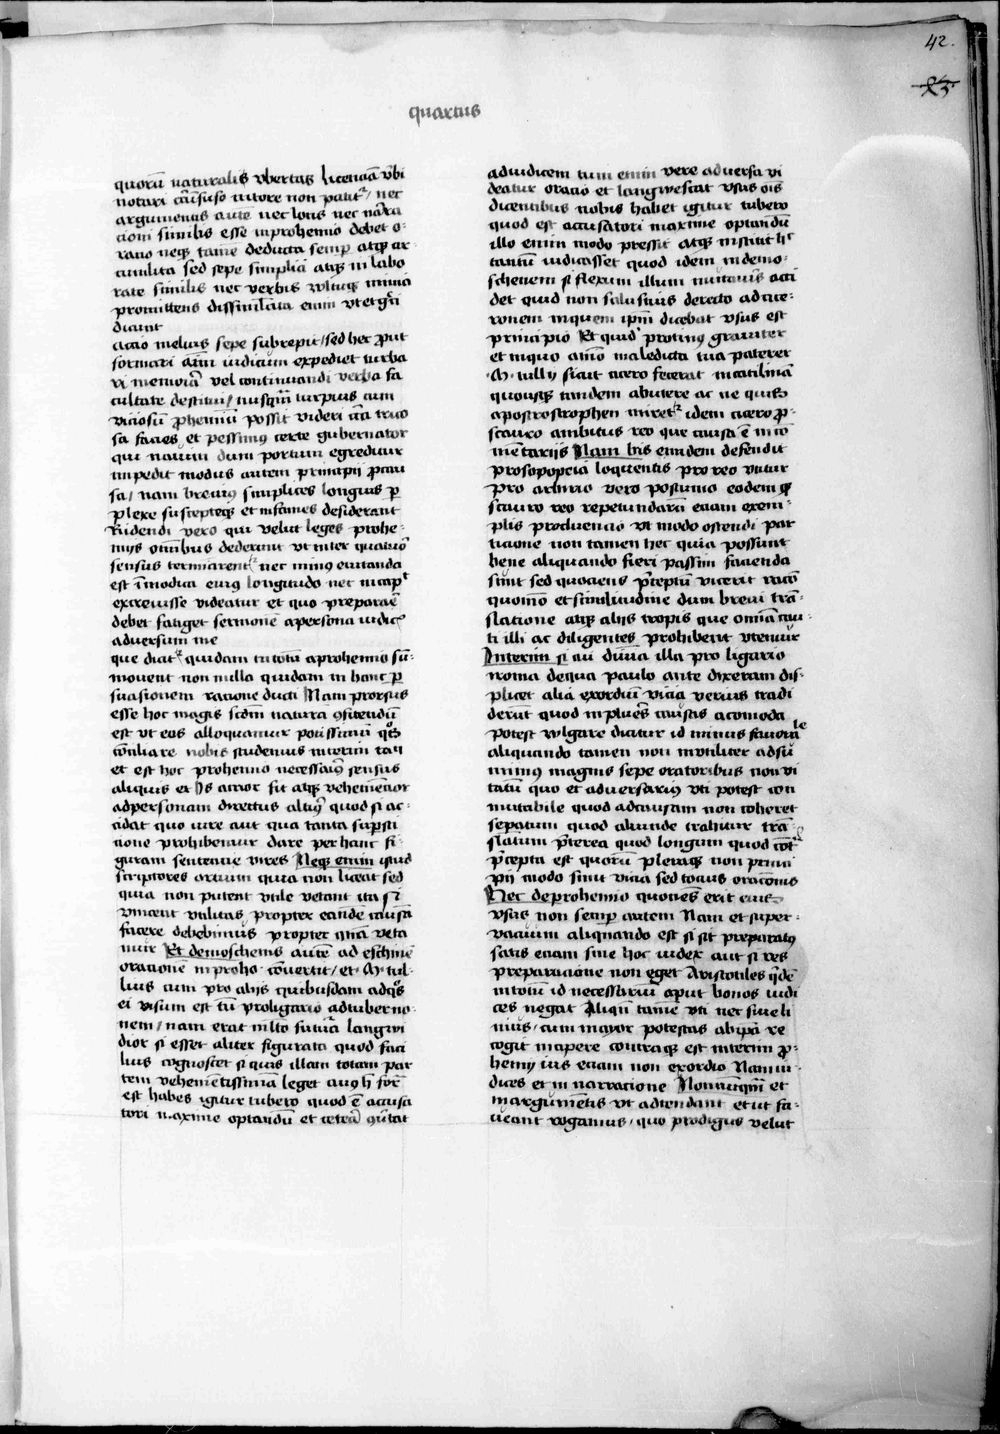 42.
quartus
quorū naturalis vbertas licenciā vbi
notari cōsuso nitore non patitr / nec
argumentis autē nec locis nec narra
cioni similis esse in prohemio debet o-
racio neqz tamē deducta semp atqz cir
cumlita sed sepe simplici atqz in labo
rate similis nec verbis vultuqz nimia
promittens dissimilata enim vt et grī
dicunt
actio melius sepe subrepit / sed hec put
formari aīm iudicum expediet turba
ri memoriā vel continuandi verba fa
cultate destitui / nusqm turpius cum
viciosū phemiū possit videri
sa facies et pessimus certe gubernator
qui nauim dum portum egreditur
impedit modus autem principii p cau
sa / nam breuius simplices longius p
plexe suspecteqz et infames desiderant
Ridendi vero qui velut leges prohe-
mijs omibus dederunt vt inter quatuor
sensus terminarentr nec minus euitanda
est īmodica eius longitudo nec in capt
excreuisse videatur et quo preparare
debet fatiget sermonē a persona iudic
aduersum me
que dicitr quidam in totū a prohemio sū-
mouent non nulla quidam in hanc p
suasionem ratione ducti Nam prorsus
esse hoc magis scdm naturā 9fitendū
est vt eos alloquamur potissimū qs
cōciliare nobis studemus interim tam
et est hoc prohemio necessariꝰ sensus
aliquis et hs acrior fit atqz vehemēcior
ad personam directus altiꝰ quod si ac-
cidat quo iure aut qua tanta supsti
cione prohibemur dare per hanc fi-
guram sentencie vires Neqz enim istud
scriptores arcium quia non liceat sed
quia non putent vtile vetant ita si
vincent vtilitas propter eandē causā
facere debebimus propter quā veta
mur Et demosthenis autē ad eschinē
orationē in prohō conuertit / et M tul-
lius cum pro alijs quibusdam ad qs
ei visum est tū pro ligario ad tubero-
nem / nam erat mlto futura langui
dior si esset aliter figurata quod faci
lius cognoscet si quis illam totam par
tem vehemētissimā leget cuiꝰ h forē
est habes igitur tubero quod ē accusa
tori maxime optandū et cetera 9vertat
ad iudicem tum enim vere aduersa vi
deatur oratio et languescat vsus ois
dicentibus nobis habet igitur tubero
quod est accusatori maxime optandū
illo enim modo pressit atqz institit hc
tantū iudicasset quod idem in demo-
sthenem si flexum illum mutaueris acci
det quid non salustius derecto ad cice-
ronem in quem ipm dicebat vsus est
principio Et quid protinus grauiter
et iniquo aīo maledicta tua paterer
M tulli sicut cicero fecerat in catilinā
quousqz tandem abutere ac ne quis
apostrostrophen miretr idem cicero p-
scauro ambitus reo que causa ē in cō
mētariis Nam bis eundem defendit
prosopopeia loquentis pro reo vtitur
pro arbirio vero postumo eodemqz
scauro reo repetundarū etiam exem-
plis producencio vt modo ostendi par
ticione non tamen hec quia possunt
bene aliquando fieri passim facienda
sunt sed quociens pceptū vicerit racō
quomō et similitudine dum breui trā-
slatione atqz alijs tropis que omīa cau-
ti illi ac diligentes prohibent vtemur
Interim si cū diuina illa pro ligario
roma dequa paulo ante dixeram dis-
plicet aliā exordiū vicia verius tradi
derūt quod in plures causas acomoda
potest vulgare dicitur id minus fauora le
aliquando tamen non inutiliter adsu
mimꝰ magnis sepe oratoribus non vi
tatū quo et aduersarius vti potest con
mutabile quod ad causam non coheret
sepatum quod aliunde trahitur trā-
slatum pterea quod longum quod cōt
pcepta est quorū pleraqz non princi
pij modo sunt vicia sed tocius oracōnis
Hec de prohemio quociēs erit eius
vsus non semp autem Nam et super-
vacuum aliquando est si sit preparatꝰ
satis etiam sine hoc iudex aut si res
preparacione non eget Aristotiles qdē
in totū id necessariū aput bonos iudi
ces negat Aliqn tamē vti nec si velī
mus / cum mayor potestas abipā re
cogit incipere contraqz est interim p-
hemij ius etiam non exordio Nam iu-
dices et in narracione Nonnunqm et
in argumētis vt adtendant et vt fa-
ueant rogamus / quo prodigus velut